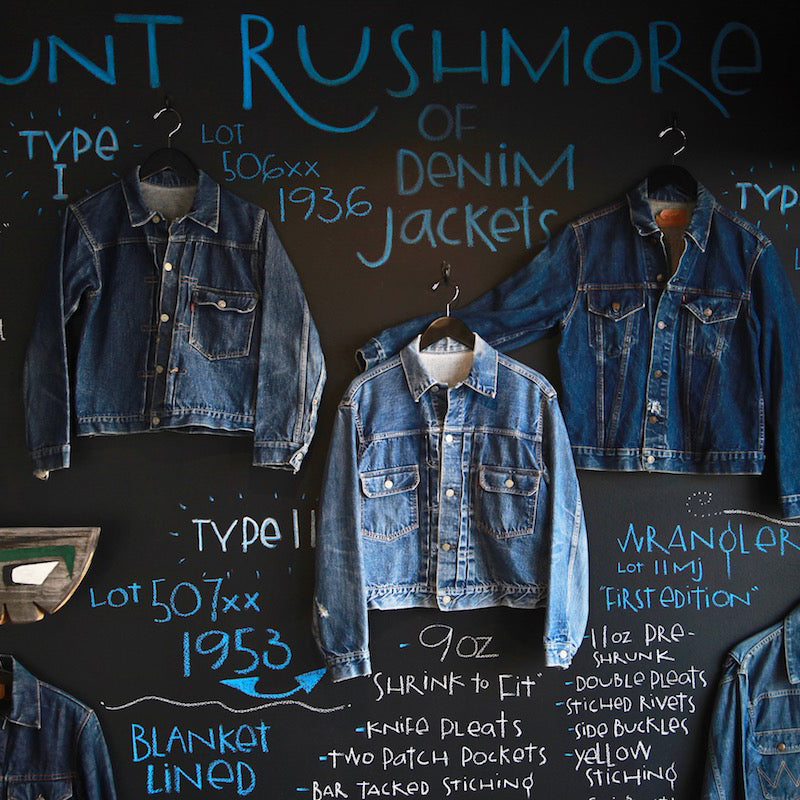 UNT RUSHMORE
OF
DENiM
JACKETS
TYPE
I
LOT
506xx
1936
TYP
TYPE II
LOT 507xx
1953
BLANKET
LINED
9 oz
"SHRINK to Fit"
-KNIFE PLEATS
-TWO PATCH POCKETS
-BAR TACKED STICHING
WRANGLER
LOT 11MJ
"FIRST EDITION"
-11oz PRE-
SHRUNK
-DOUBLE PLEATS
-STICHED RIVETS
-SIDE BUCKLES
-YELLOW
STICHING